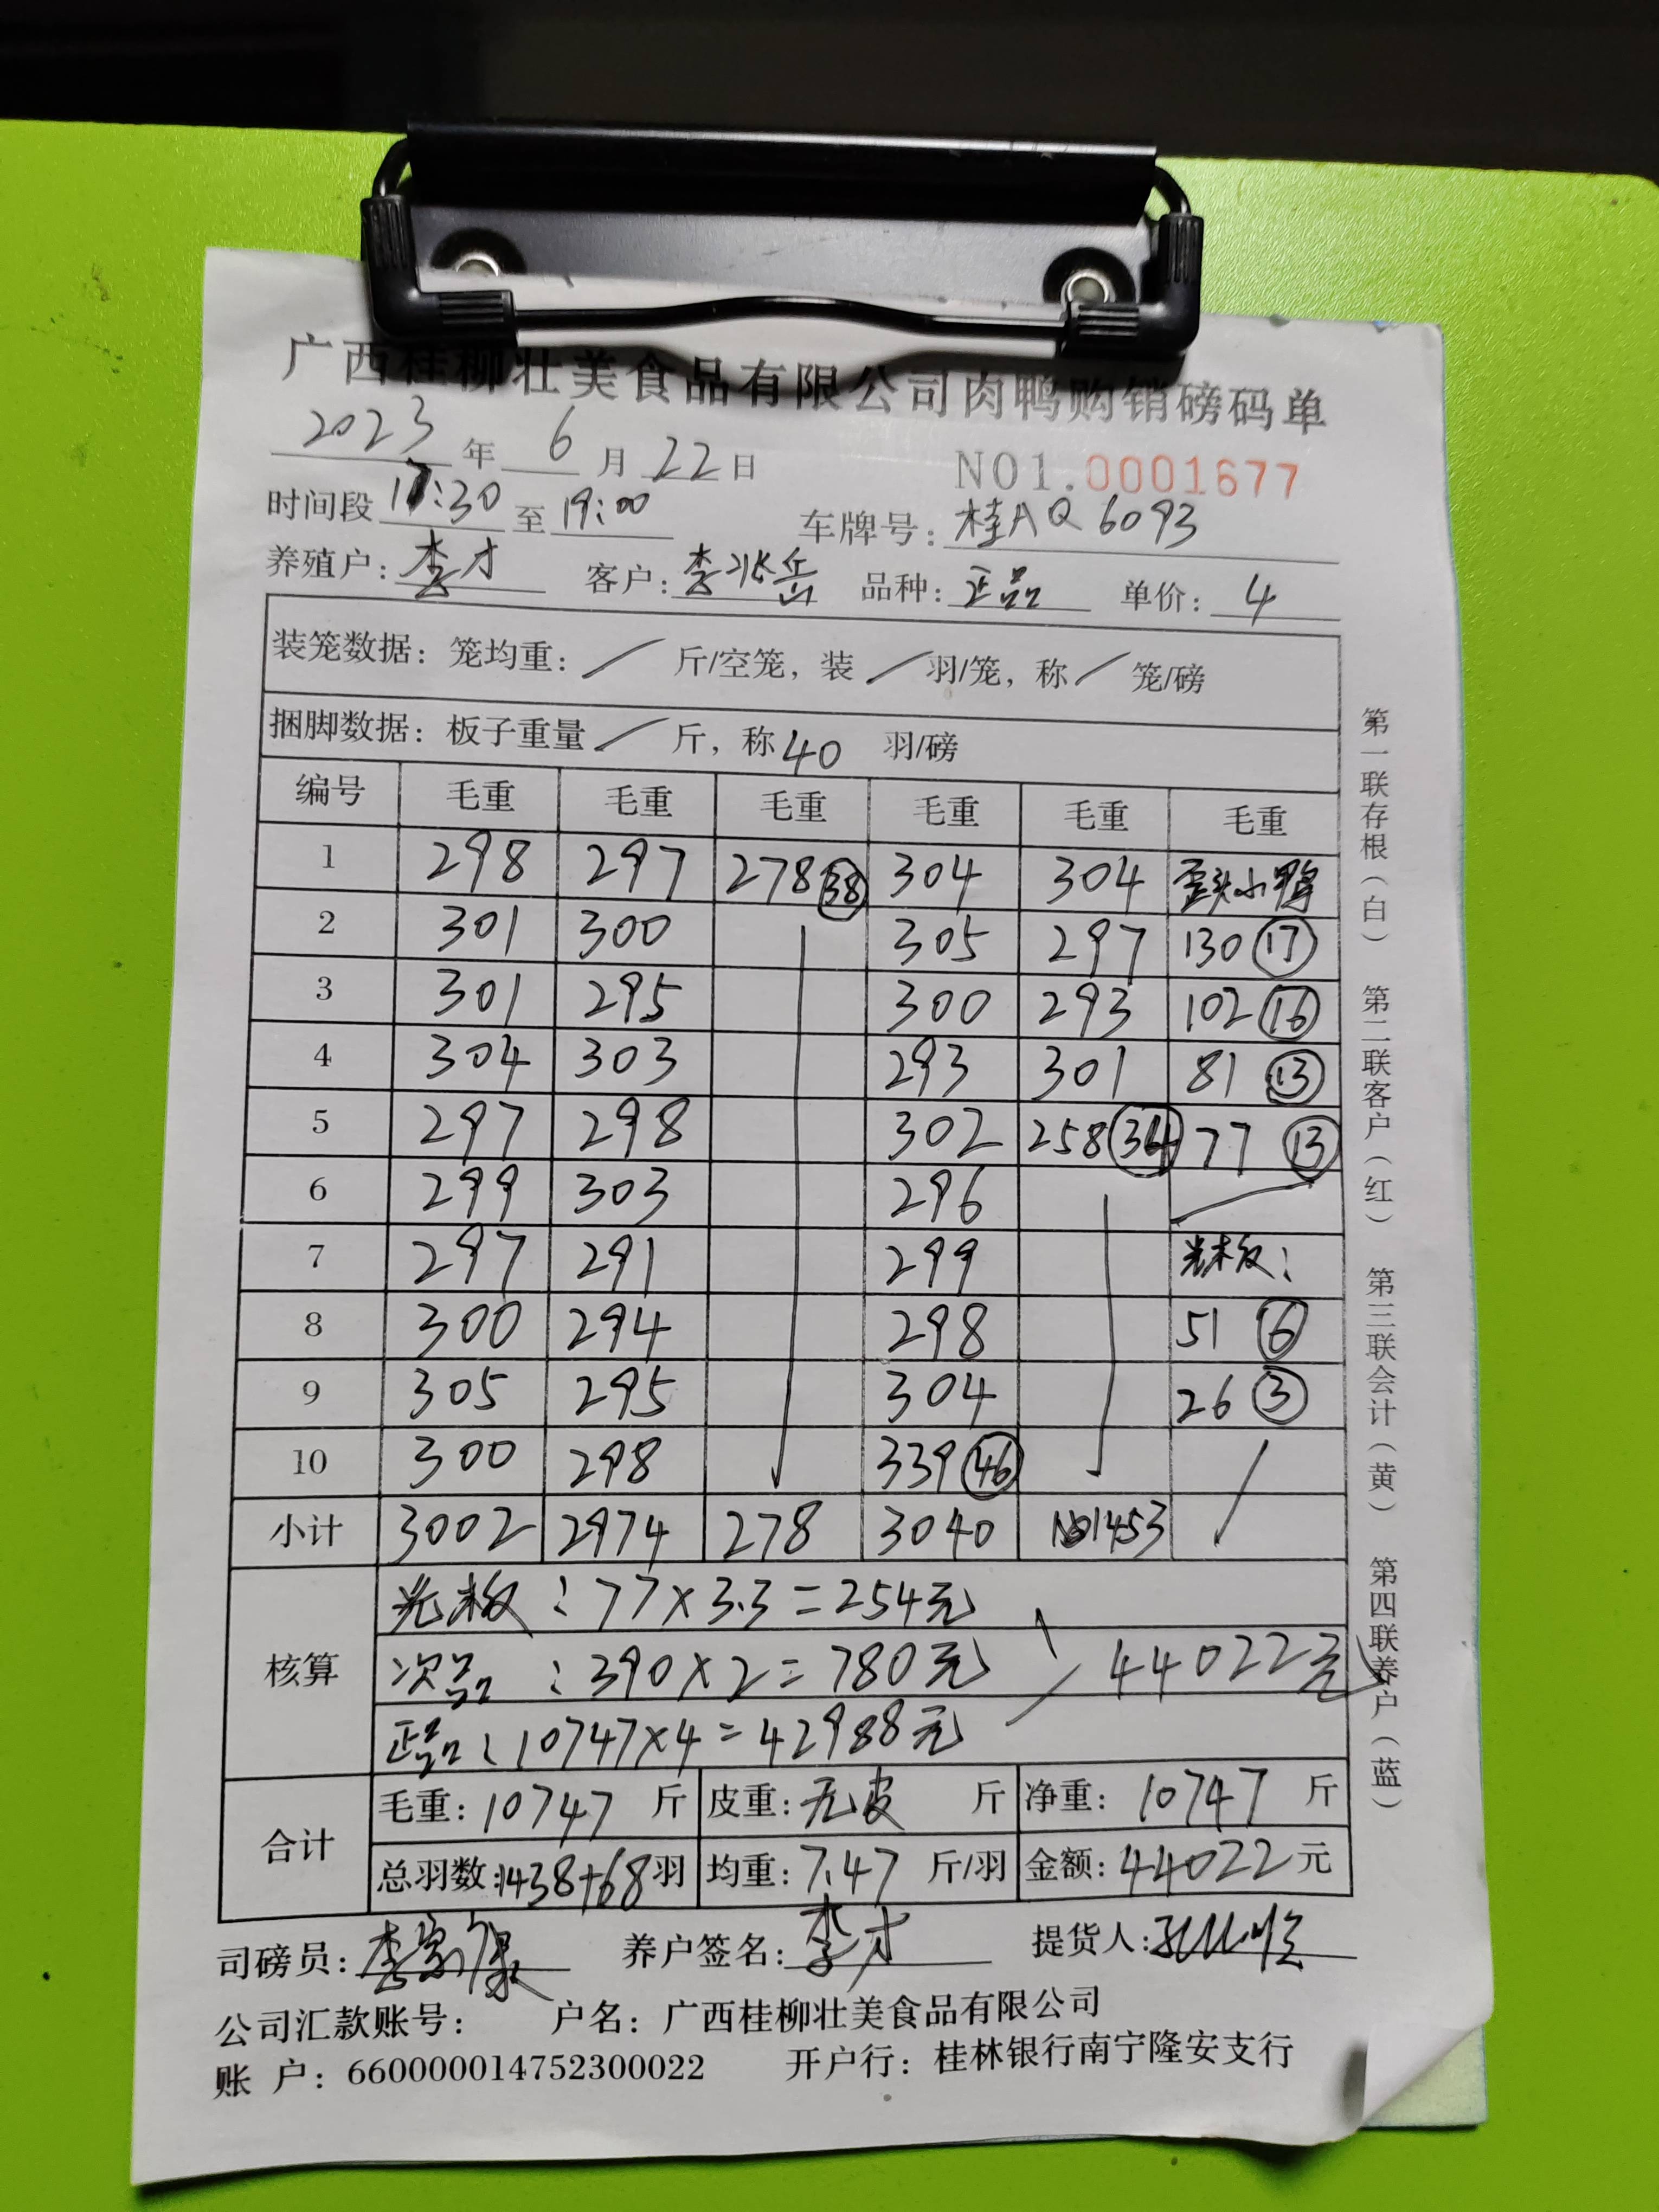 广西桂柳壮美食品有限公司肉鸭购销磅码单
2023年6月22日 NO1.0001677
时间段17:30至19:00 车牌号:桂AQ6093
养殖户:李才 客户:李兆岳 品种:正品 单价:4
装笼数据:笼均重:/ 斤/空笼,装/羽/笼,称/笼/磅
捆脚数据:板子重量/斤,称40羽/磅
编号 毛重 毛重 毛重 毛重 毛重 毛重
1 298 297 278 38 304 304 歪头小鸭
2 301 300 305 297 130 17
3 301 295 300 293 102 16
4 304 303 293 301 81 13
5 297 298 302 258 34 77 13
6 299 303 296
7 297 291 299 光末板:
8 300 294 298 51 6
9 305 295 304 26 3
10 300 298 339 46
小计 3002 2974 278 3040 1453
核算
光末板:77×3.3=254元
次品:390×2=780元 44022元
正品:10747×4=42988元
合计
毛重:10747斤 皮重:无皮斤 净重:10747斤
总羽数:1438+68羽 均重:7.47斤/羽 金额:44022元
司磅员:李 养户签名:李才 提货人:
公司汇款账号: 户名:广西桂柳壮美食品有限公司
账 户:660000014752300022 开户行:桂林银行南宁隆安支行
第一联存根(白) 第二联客户(红) 第三联会计(黄) 第四联养户(蓝)